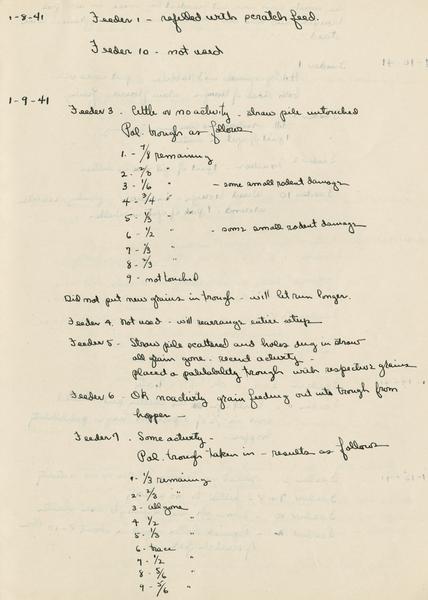 1-8-41 Feeder 1 - refilled with scratch feed.
Feeder 10 - not used
1-9-41 Feeder 3. little or no activity - straw pile untouched
Pal. trough as follows
1. - 7/8 remaining
2 - "
3 - 1/6 " - some small rodent damage
4 - 3/4 "
5 - 1/3 "
6 - 1/2 " - some small rodent damage
7 - 1/3 "
8 - 2/3 "
9 - not touched
Did not put new grains in trough - will let run longer.
Feeder 4. Not used - will rearrange entire setup
Feeder 5 - Straw pile scattered and holes dug in straw
all grain gone - recent activity -
placed a palitability trough with respective grains
Feeder 6 - OK no activity grain feeding out into trough from
hopper -
Feeder 7. Some activity -
Pal. trough taken in - results as follows
1 - 1/3 remaining
2 - 2/3 "
3 - all gone
4 1/2 "
5 - 1/3 "
6 - trace
7 - 1/2 "
8 - 5/6 "
9 - 5/6 "